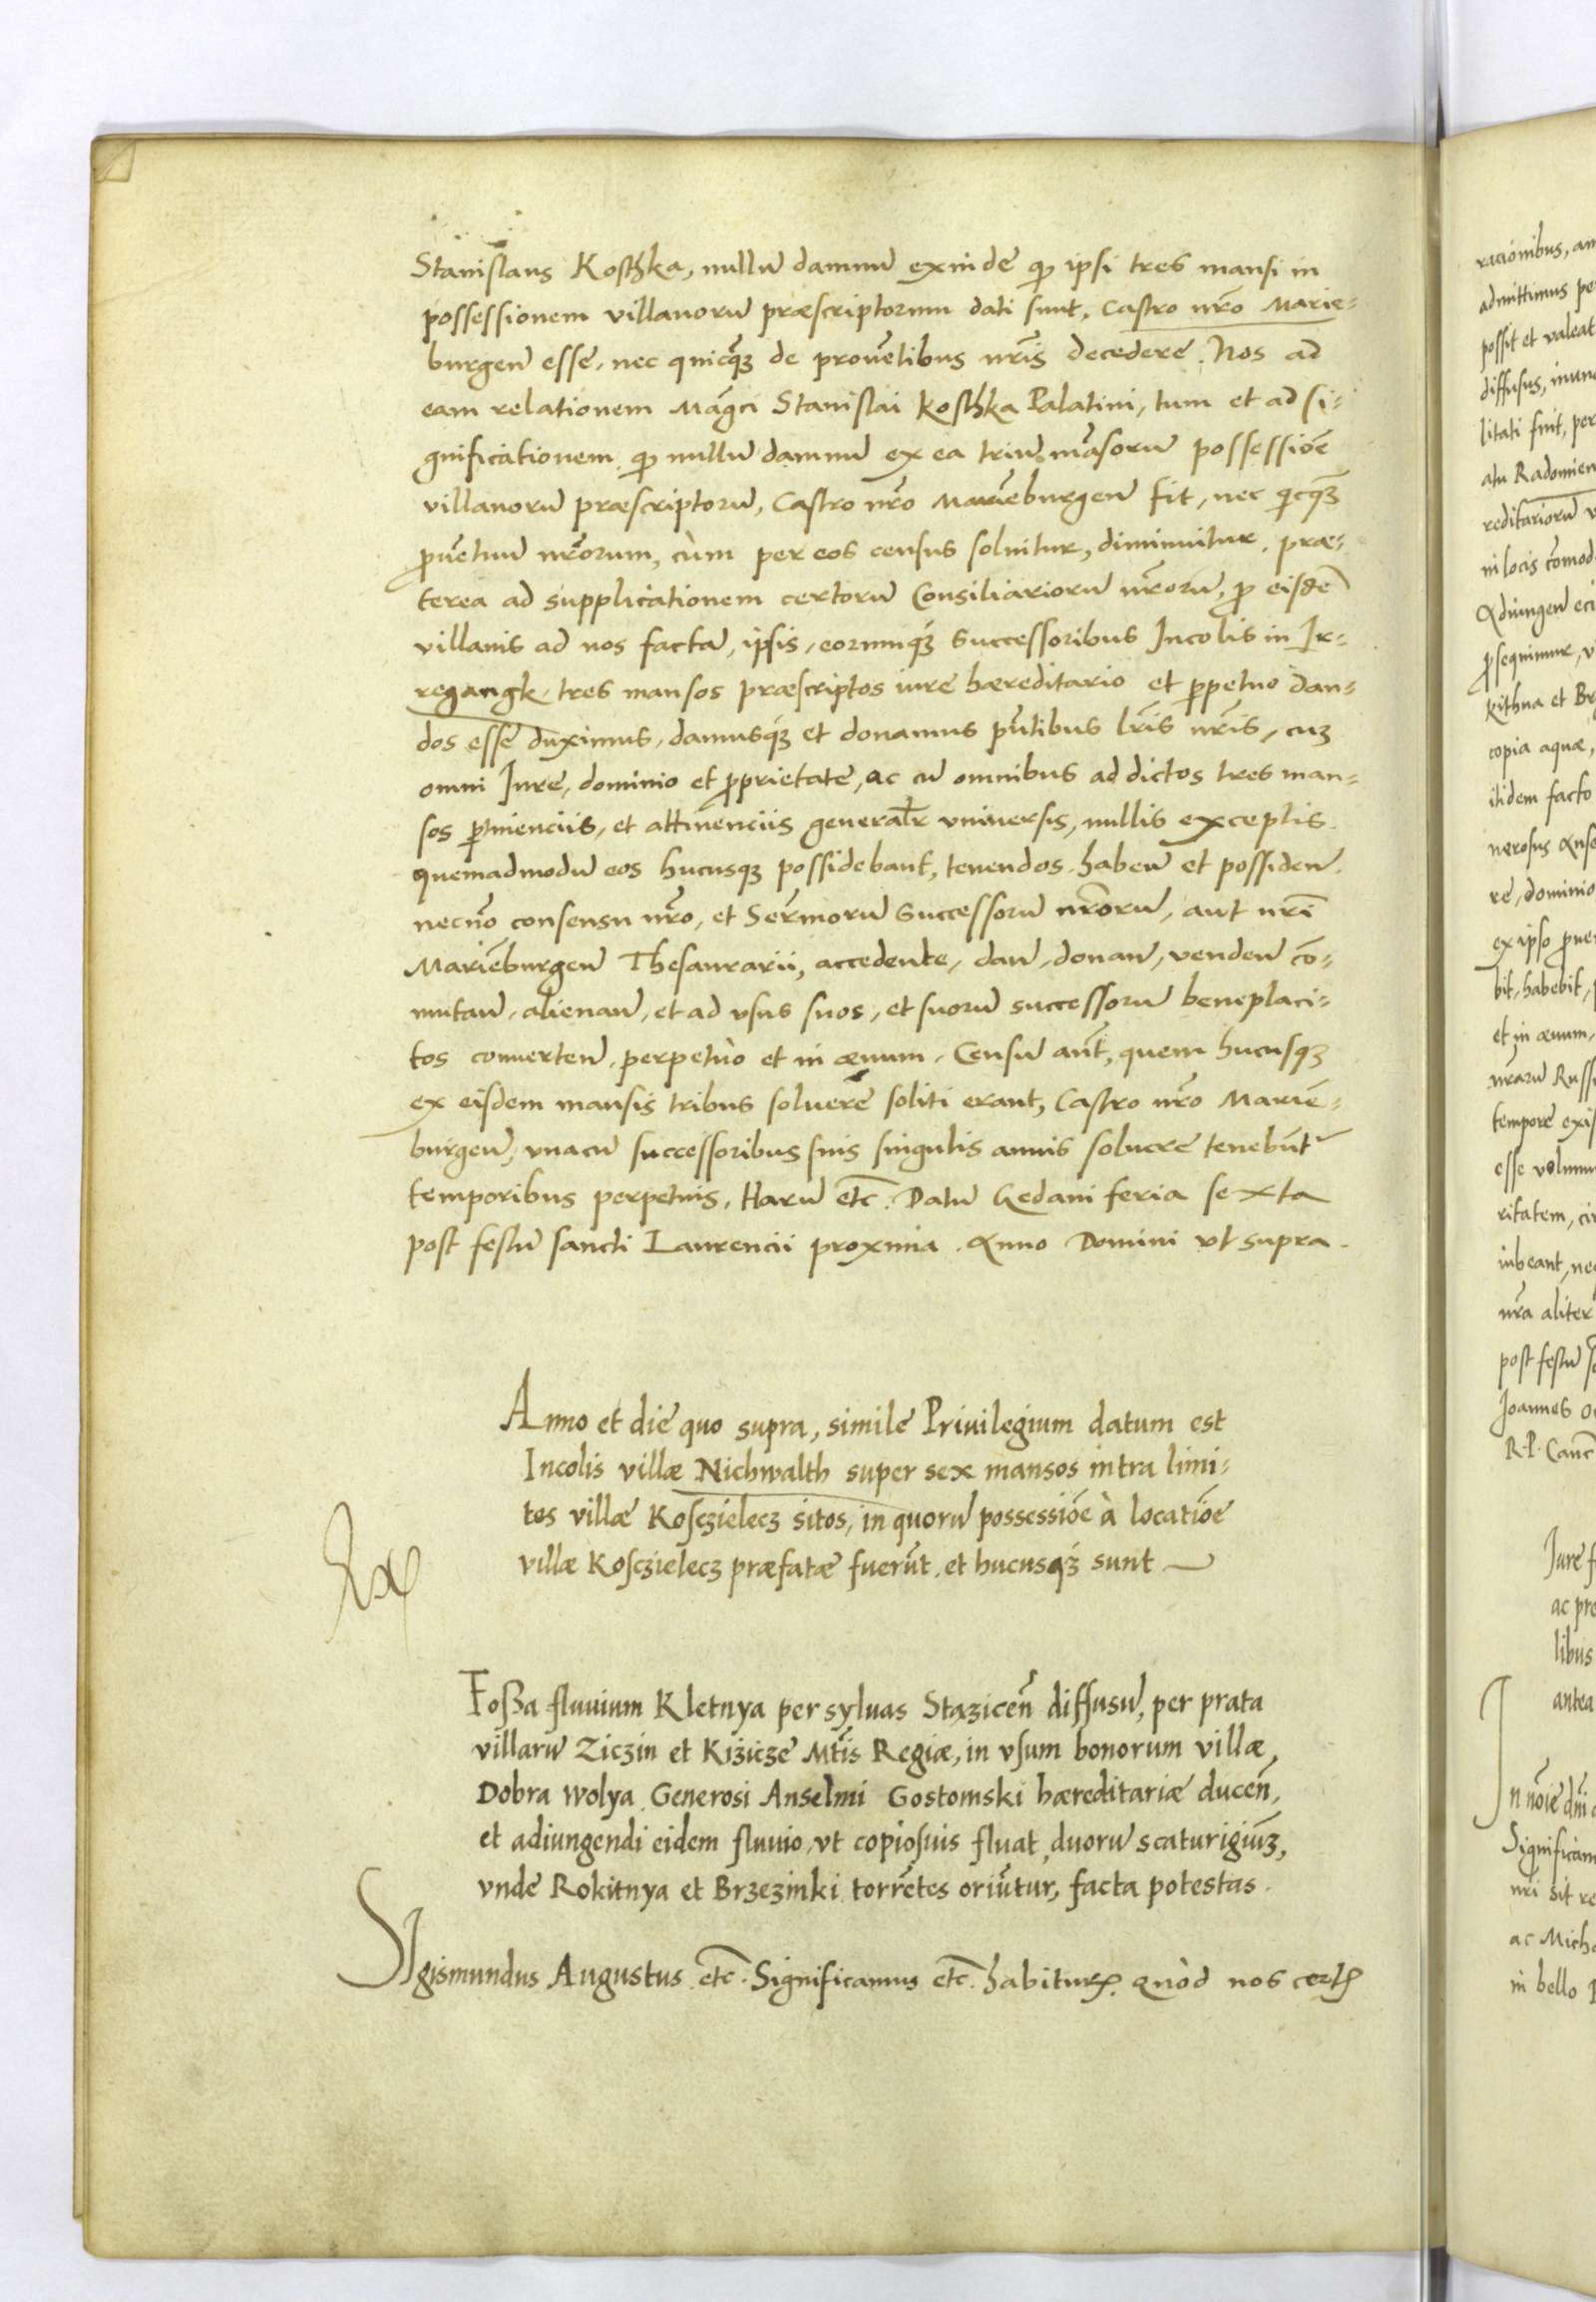 Stanislaus Kosthka, nullū damnū exinde qp ipsi tres mansi in
possessionem villanorū præscriptorum dati sunt, Castro nr̄o Marie-
burgeñ esse, nec quicq̃ȝ de prouētibus nr̄is decedere. Nos ad
eam relationem Mag̃ci Stanislai Kosthka Palatini, tum et ad si-
gnificationem qp nullū damnū ex ea triū māsorū possessiōe
villanorū præscriptorū, Castro nr̄o Marieburgeñ fit, nec qicq̃ȝ
ꝓuētuū nr̄orum, cùm per eos census soluitur, diminuitur, præ-
terea ad supplicationem certorū Consiliariorū nr̄orū, ꝓ eisdē
villanis ad nos factā, ipsis, eorumq́ȝ successoribus Incolis in Ir-
regangk, tres mansos præscriptos iure hæreditario et ꝑpetuo dan-
dos esse duximus, damusq́ȝ et donamus pn̄tibus lr̄is nr̄is, cuȝ
omni Jure, dominio et ꝓprietate, ac cū omnibus ad dictos tres man-
sos ꝑtinenciis, et attinenciis generalr̄ vniuersis, nullis exceptis.
quemadmodū eos hucusqȝ possidebant, tenendos. habeñ et possideñ.
necnō consensu nr̄o, et Serm̄orū successorū nr̄orū, aut nr̄i
Marieburgeñ Thesaurarii, accedente, dañ, donañ, vendeñ cō-
mutañ, alienañ, et ad vsus suos, et suorū successorū beneplaci-
tos conuerteñ, perpetuò et in æuum. Censū aūt, quem hucusqȝ
ex eisdem mansis tribus soluere soliti erant, Castro nr̄o Marie-
burgeñ, vnacū successoribus suis singulis annis soluere tenebūt͛
temporibus perpetuis. Harū etc̄. Datū Gedani feria sexta
post festū sancti Laurencii proxima. Anno Domini vt supra.
Anno et die quo supra, simile Priuilegium datum est
Incolis villæ Nichwalth super sex mansos intra limi-
tes villæ Kosczielecz sitos, in quorū possessiōe à locatiōe
villæ Kosczielecz præfatæ fuerūt, et hucusq́ȝ sunt
Foßa fluuium Kletnya per syluas Stazicen̄ diffusū, per prata
villarū Ziczin et Kiżicze Mt̄is Regiæ, in vsum bonorum villæ
Dobra wolya Generosi Anselmi Gostomski hæreditariæ ducen̄,
et adiungendi eidem fluuio, vt copiosius fluat, duorū scaturigiūȝ,
vnde Rokitnya et Brzezinki torrētes oriūtur, facta potestas.
SIgismundus Augustus etc̄. Significamus etc̄. habituRꝭ. Quòd nos certꝭ
racionibus, an
admittimus pe
possit et valeat
diffusus, inun
litati sint, per
atu Radomien
reditariorū v
in locis cōmod
Adiungeñ eci
ꝓsequimur, v
kithna et Br
copia aquæ,
itidem facto
nerosus Anse
re, dominio
ex ipso ꝓue
bit, habebit,
et in æuum,
nr̄arū Russi
tempore exis
esse volumu
ritatem, cir
iubeant, nec
nr̄a aliter
post festū s
Joannes O
R. P. Canc̄
Jure f
ac pre
libus
antea
In nōie dn̄i
Significam
nr̄i sit re
ac Micha
in bello